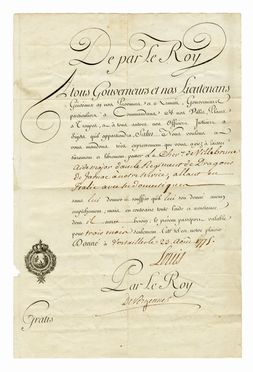 De par le Roy
A tous Gouverneurs et nos Lieutenans
Généraux en nos Provinces et Gouverneurs
particuliers Commandans de nos Villes Places
et Troupes, et à tous autres nos Officiers
qu'il appartiendra, Salut. Nous voulons
vous mandons très expressément que vous ayez à laisser
sûrement et librement passer Le Cher de
Aide major dans le Régiment de Dragons
de Jarnac allant en
Italie avec
sans luy donner ni souffrir qu'il luy soit donné aucun
empêchement; mais au contraire toute aide et assistance
dont il aura besoin; le présent passeport valable
pour trois mois seulement. Car tel est notre plaisir.
Donné à Versailles le 22 Août 1775
Louis
Par le Roy
De Vergennes
Gratis